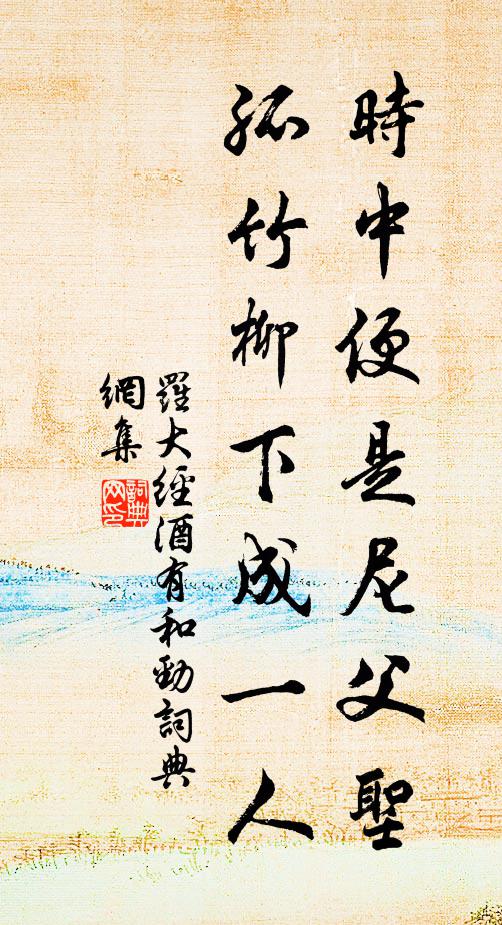 時中便是尼父聖
孤竹柳下成一人
羅大經酒有和勁詞典
網集
詞典
网印